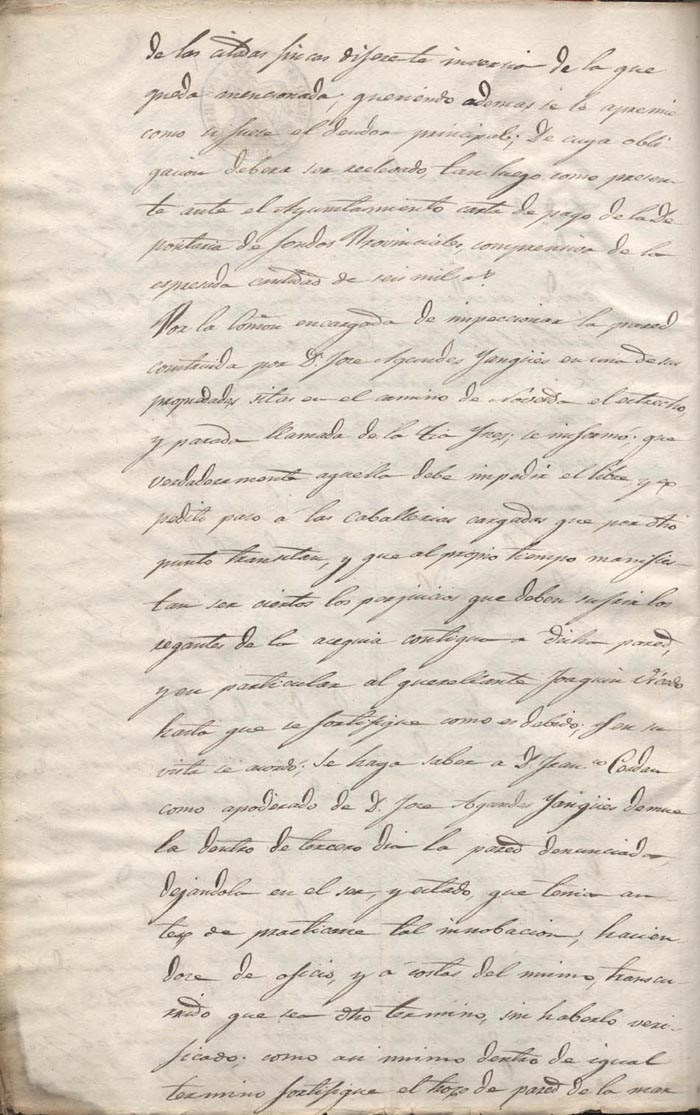 de las citadas fincas diferente inversion de la que
queda mencionada, queriendo ademas se le apremie
como si fuere el deudor principal; De cuya obli
gacion debera ser relevado, tan luego como presen
te ante el Ayuntamiento carta de pago de la De
positaria de fondos Provinciales, comprensiva de la
espresada cantidad de seis mil rs.
Por la Comon encargada de inspeccionar la pared
construida por Dn Jose Yangües en una de sus
propiedades sitas en el camino de Novelda el estrecho,
y parada llamada de la tia Ines; se informó: que
verdaderamente aquella debe impedir el libre y ex
pedito paso á las caballerias cargadas que por dho
punto transitan, y que al propio tiempo manifies-
tan ser ciertos los perjuicios que deben sufrir los
regantes de la acequia contigua a dicha pared,
y en particular al querellante Joaquin
hasta que se fortifique como es debido; Y en su
vista se acordó; Se haga saber a D. Franco
como apoderado de D. Jose Yangües demue
la dentro de tercero dia la pared denunciada,
dejandola en el ser, y estado, que tenia an
tes de practicarse tal innobacion; hacien
dose de oficio, y á costas del mismo, transcu-
rrido que sea dho termino, sin haberlo veri-
ficado; como asi mimo dentro de igual
termino fortifique el trozo de pared de la mar